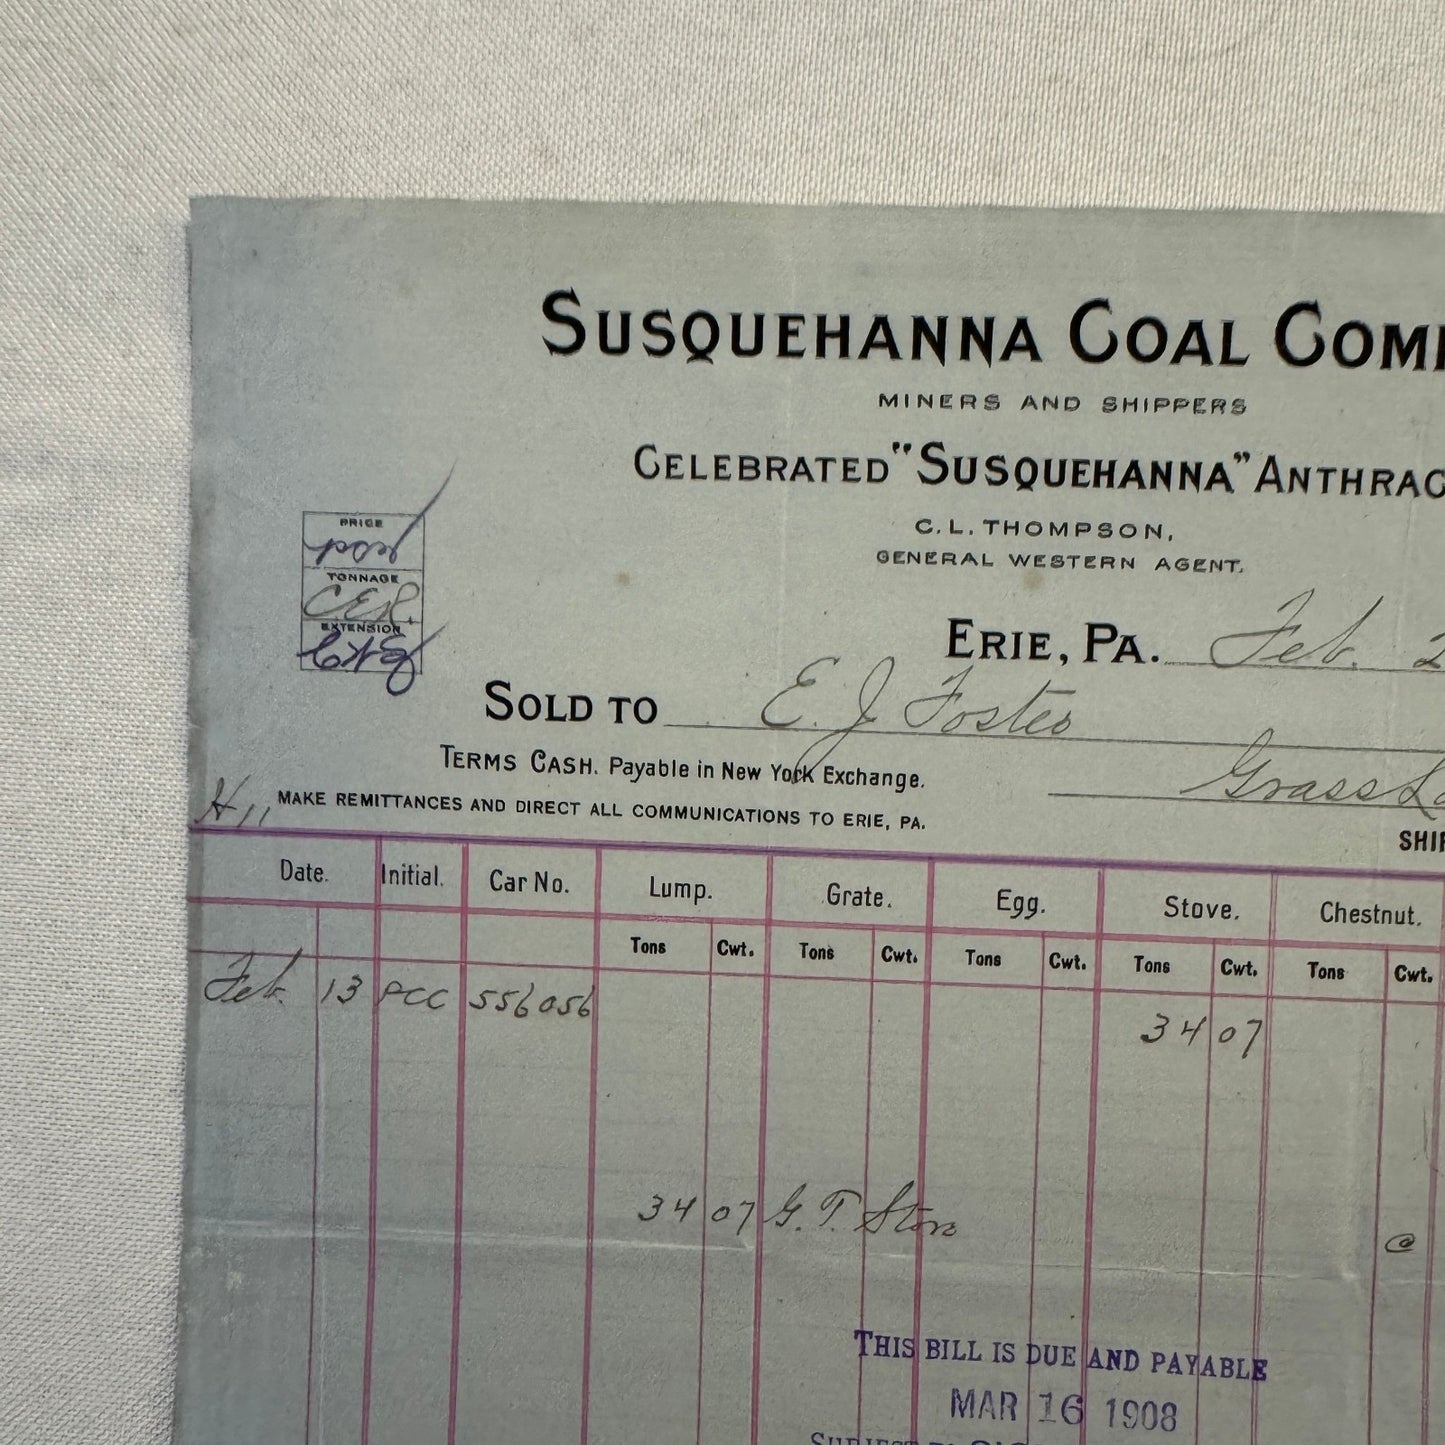 SUSQUEHANNA COAL COMP
MINERS AND SHIPPERS
CELEBRATED "SUSQUEHANNA" ANTHRAC
C. L. THOMPSON,
GENERAL WESTERN AGENT.
PRICE
TONNAGE
CER.
EXTENSION
ERIE, PA. Feb. 2
SOLD TO E. J Foster
TERMS CASH. Payable in New York Exchange.
Grass L
MAKE REMITTANCES AND DIRECT ALL COMMUNICATIONS TO ERIE, PA.
SHI
Date. Initial. Car No. Lump. Grate. Egg. Stove. Chestnut.
Tons Cwt. Tons Cwt. Tons Cwt. Tons Cwt. Tons Cwt.
Feb. 13 PCC 556056 34 07
34 07 G. T. Stove @
THIS BILL IS DUE AND PAYABLE
MAR 16 1908
SUBJECT